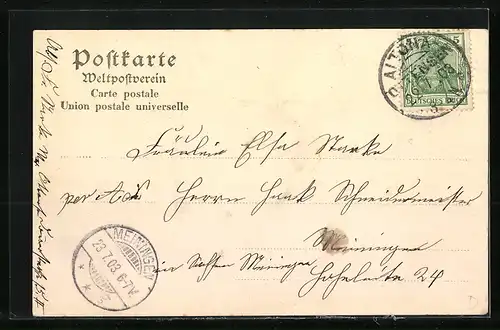 Postkarte
Weltpostverein
Carte postale
Union postale universelle
ALTONA
5
DEUTSCHES REICH
Fräulein Elsa Starke
per Ad. Herrn Hank Schneidermeister
Meiningen
in Sachsen Meiningen
Hoheleite 24
MEININGEN
23.7.03. 6-7